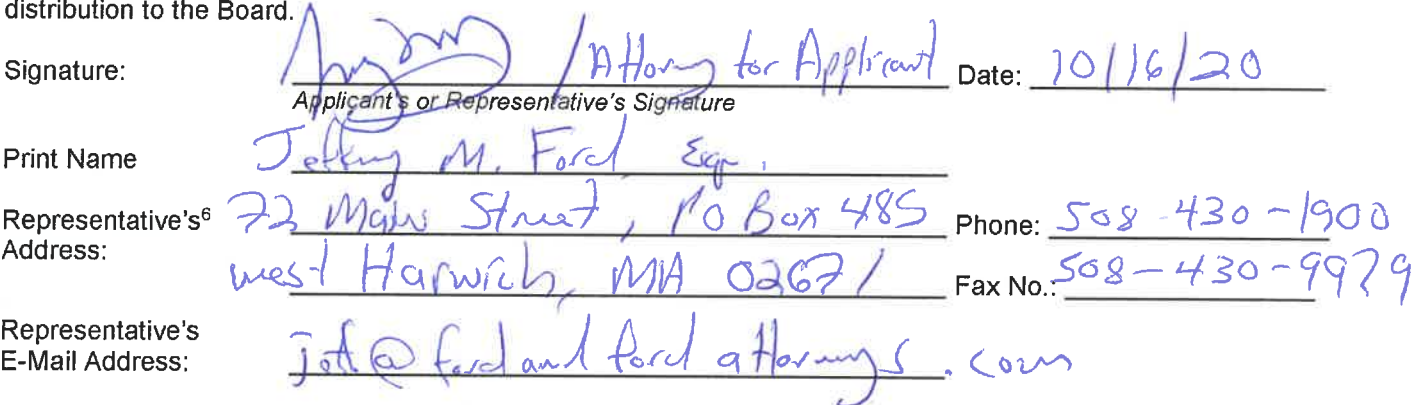 distribution to the Board.
Signature: / Attorney for Applicant Date: 10/16/20
Applicant's or Representative's Signature
Print Name Jeffrey M. Ford, Esq.
Representative's⁶ 72 Main Street, PO Box 485 Phone: 508-430-1900
Address: West Harwich, MA 02671 Fax No.: 508-430-9979
Representative's
E-Mail Address: jeff@fordandfordattorneys.com